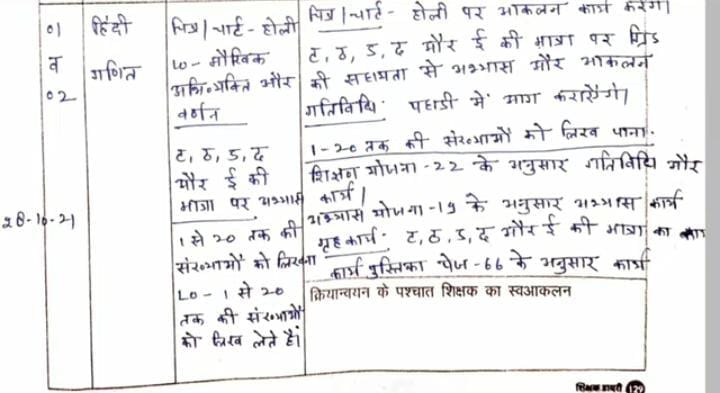 01
व
02
28-10-21
हिंदी
गणित
चित्र/चार्ट- होली
LO- मौखिक
अभिव्यक्ति और
वर्णन
ट, ठ, ड, ढ
और ई की
मात्रा पर अभ्यास
1 से 20 तक की
संख्याओं को लिखना
LO - 1 से 20
तक की संख्याओं
को लिख लेते हैं।
चित्र/चार्ट- होली पर आकलन कार्य करेंगे।
ट, ठ, ड, ढ और ई की मात्रा पर ग्रिड
की सहायता से अभ्यास और आकलन
गतिविधि: पहाडी में भाग कराऐंगे।
1-20 तक की संख्याओं को लिख पाना.
शिक्षण योजना-22 के अनुसार गतिविधि और
कार्य।
अभ्यास योजना-19 के अनुसार अभ्यास कार्य
गृहकार्य: ट, ठ, ड, ढ और ई की मात्रा का कार्य
कार्य पुस्तिका पेज-66 के अनुसार कार्य
क्रियान्वयन के पश्चात शिक्षक का स्वआकलन
शिक्षक डायरी 129